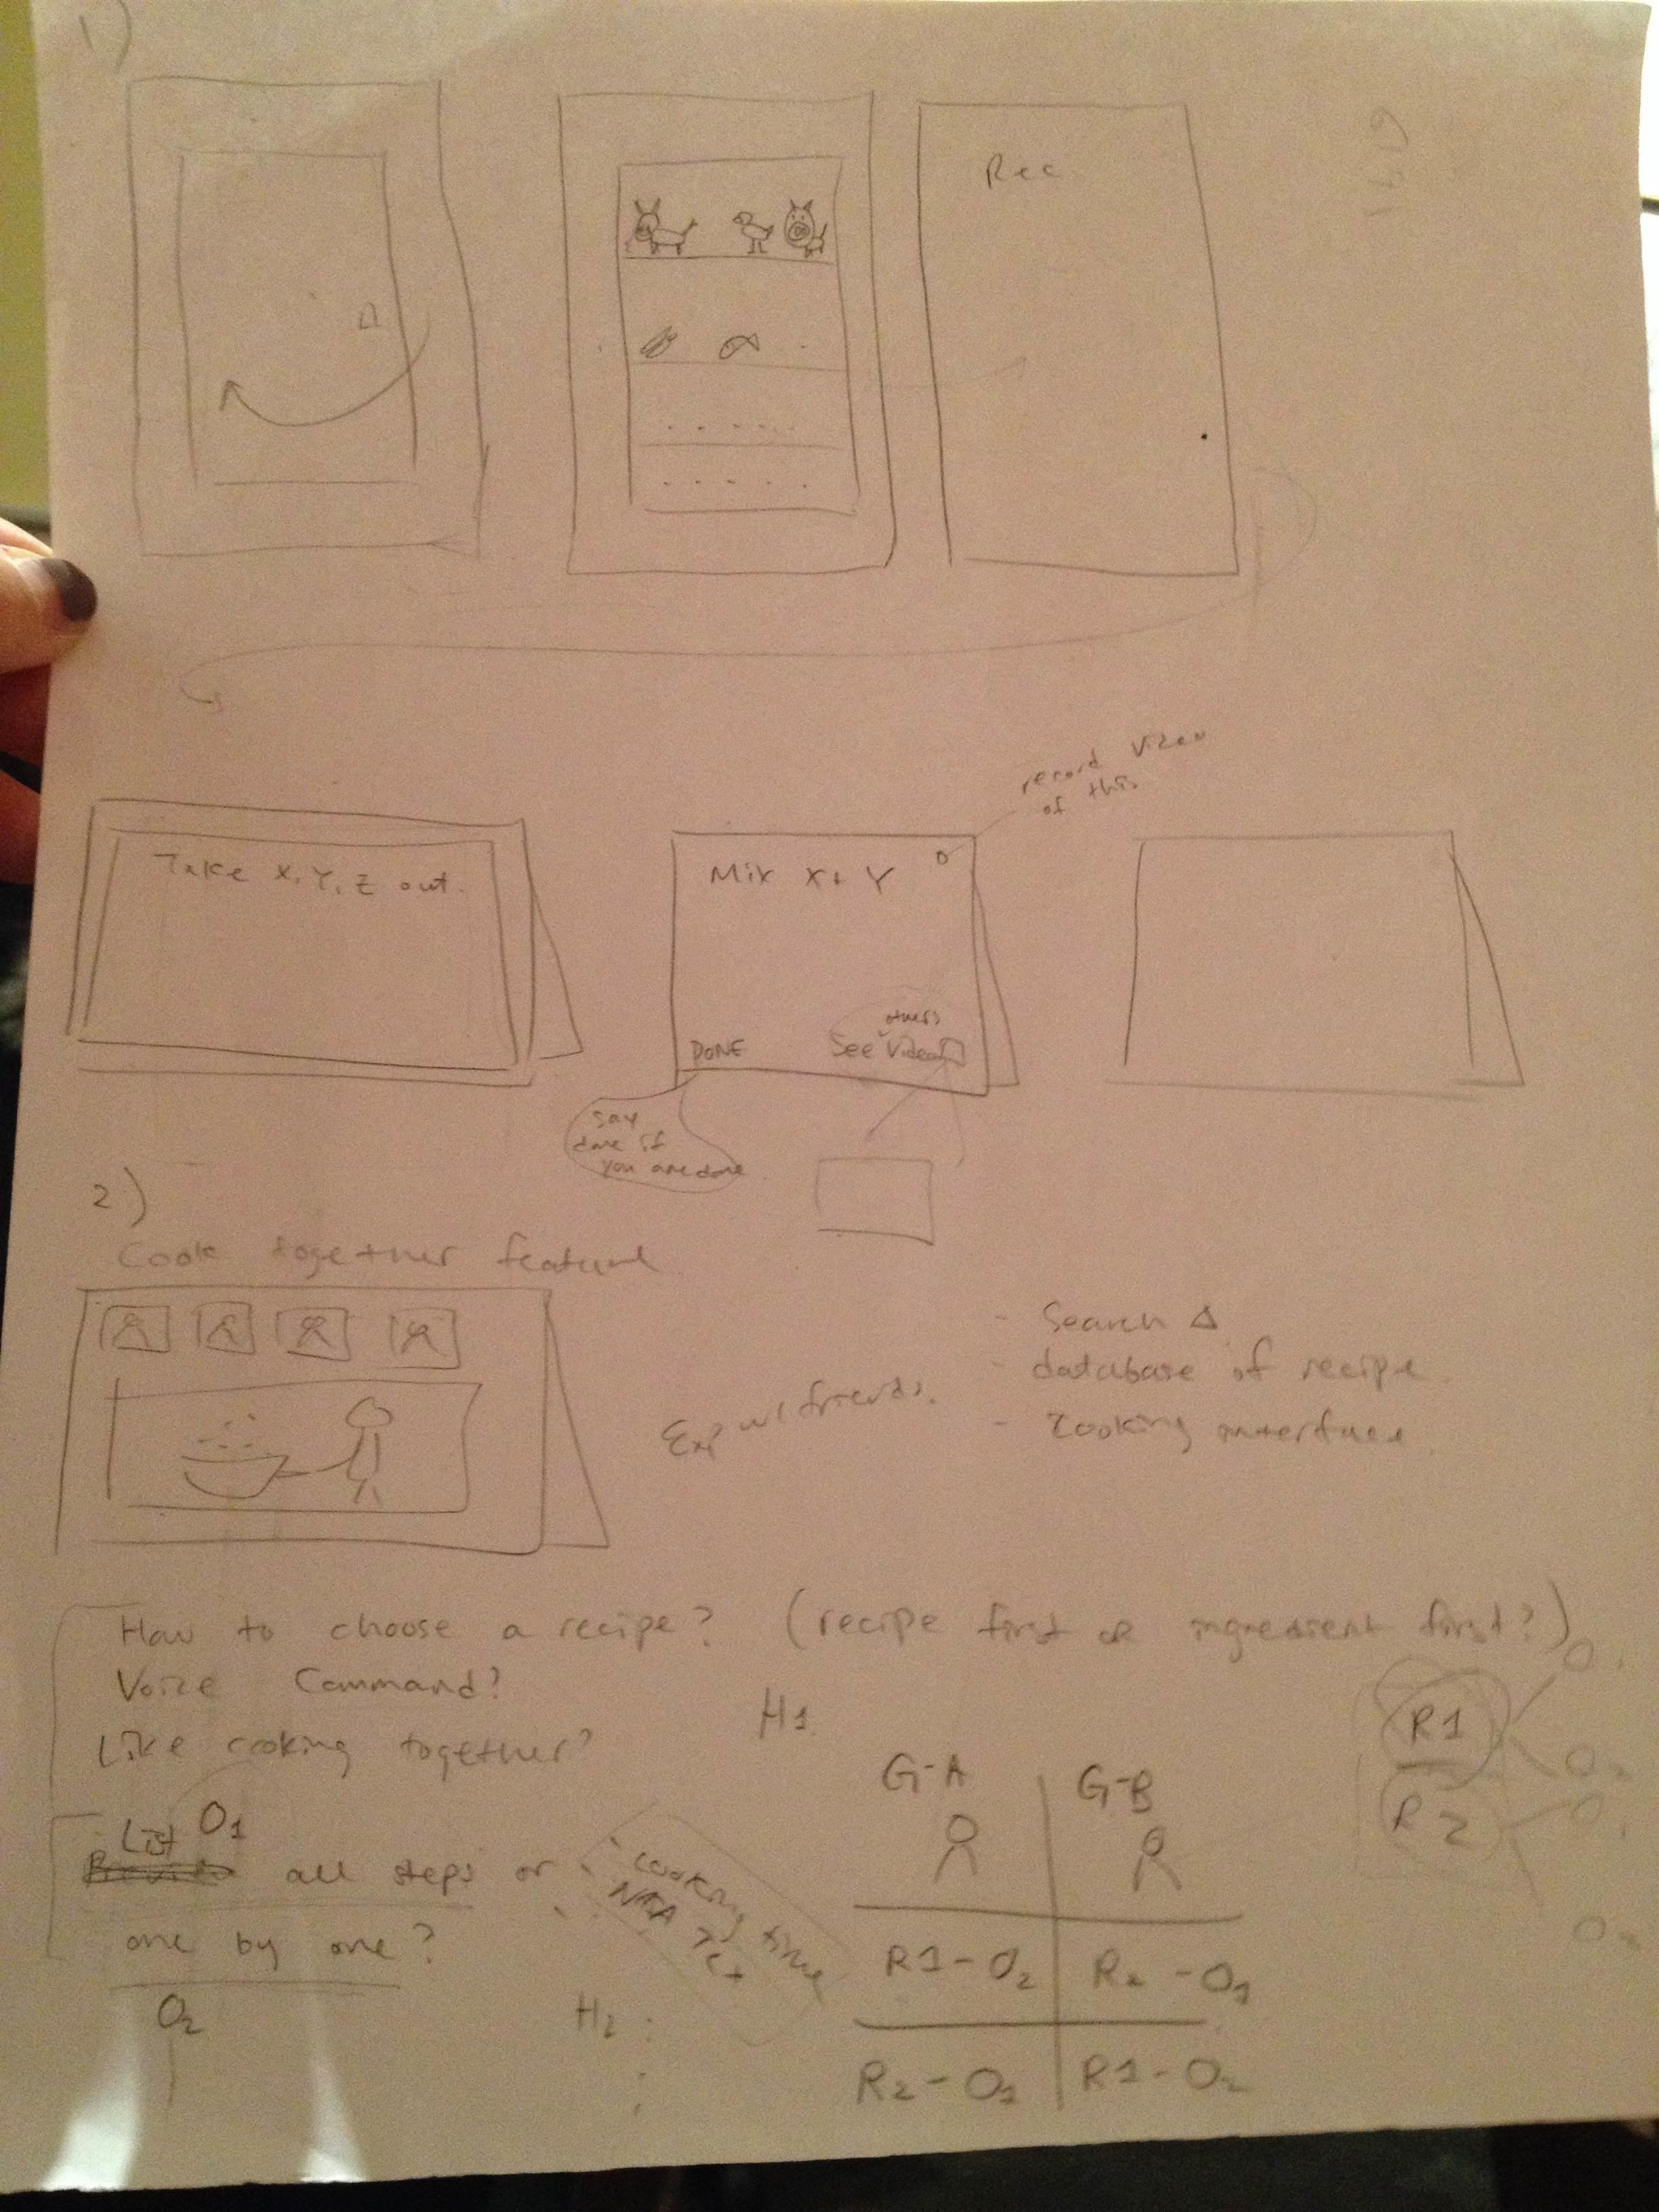 1)
Rec
record video
of this
Take X, Y, Z out.
Mix X + Y
DONE
others
See Video
say
done if
you are done
2)
Cook together feature
Exp w/ friends.
- Search
- database of recipe
- cooking interface
How to choose a recipe? (recipe first or ingredient first?)
Voice Command?
Like cooking together?
List O1
all steps or
one by one?
O2
cooking time
H1
G-A
G-B
R1 - O2
R2 - O1
R2 - O1
R1 - O2
H2 :
R1
R2